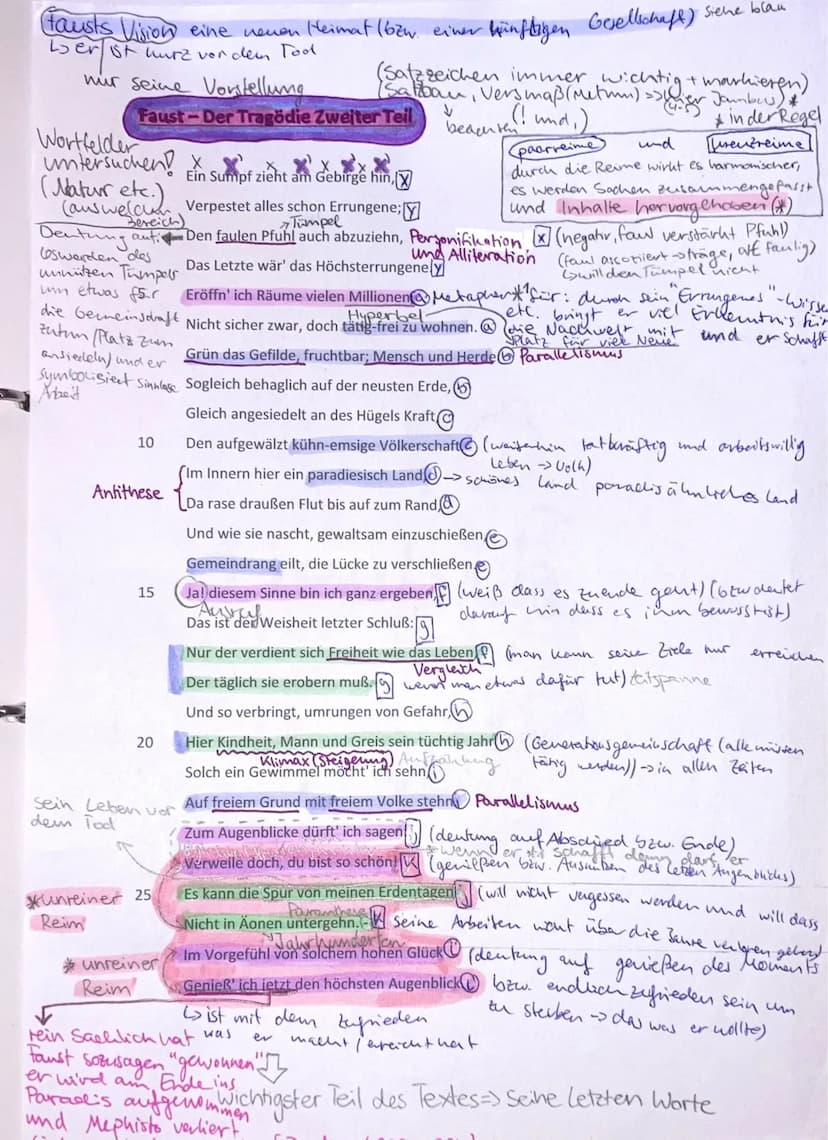 Fausts Vision eine neuen Heimat (bzw. einer künftigen Gesellschaft) siehe blau
↳ er ist kurz vor dem Tod
nur seine Vorstellung
(Satzzeichen immer wichtig + markieren)
(Satzbau, Versmaß (Metrum) => Jambus) *
beachten (! und,) * in der Regel
Faust – Der Tragödie Zweiter Teil
Wortfelder
untersuchen!
(Natur etc.)
(aus welchem
Bereich)
paarreime und kreuzreime
durch die Reime wirkt es harmonischer,
es werden Sachen zusammengefasst
und Inhalte hervorgehoben (*)
x x x x x x x
Ein Sumpf zieht am Gebirge hin, x
Verpestet alles schon Errungene; y
→ Tümpel
Den faulen Pfuhl auch abzuziehn, Personifikation x (negativ, faul verstärkt Pfuhl)
und Alliteration
Das Letzte wär' das Höchsterrungene y
(faul assotiiert → träge, alt faulig)
↳ will den Tümpel nicht
Deutung auf
loswerden des
unnützen Tümpels
um etwas für
die Gemeinschaft
zutun (Platz zum
ansiedeln) und er
symbolisiert sinnlose
Arbeit
Eröffn' ich Räume vielen Millionen a Metapher *1 für: durch sein "Errungenes" - Wisse
Hyperbel
etc. bringt er viel Erkenntnis für
Nicht sicher zwar, doch tätig-frei zu wohnen. a (die Nachwelt mit und er schafft
Platz für viel Neue
Grün das Gefilde, fruchtbar; Mensch und Herde b Parallelismus
Sogleich behaglich auf der neusten Erde, b
Gleich angesiedelt an des Hügels Kraft c
10 Den aufgewälzt kühn-emsige Völkerschaft c (weiterhin tatkräftig und arbeitswillig
Leben → Volk)
Antithese
Im Innern hier ein paradiesisch Land, d → schönes Land paradisähnliches Land
Da rase draußen Flut bis auf zum Rand, d
Und wie sie nascht, gewaltsam einzuschießen e
Gemeindrang eilt, die Lücke zu verschließen e
15 Ja! diesem Sinne bin ich ganz ergeben, f (weiß dass es zuende geht) (bzw deutet
Ausruf
darauf hin dass es ihm bewusst ist)
Das ist der Weisheit letzter Schluß: g
Nur der verdient sich Freiheit wie das Leben, f (man kann seine Ziele nur erreichen
Vergleich
Der täglich sie erobern muß. g wenn man etwas dafür tut) Zeitspanne
Und so verbringt, umrungen von Gefahr, h
20 Hier Kindheit, Mann und Greis sein tüchtig Jahr h (Generationsgemeinschaft (alle müssen
Klimax (Steigerung) Aufzählung
tätig werden)) → in allen Zeiten
Solch ein Gewimmel möcht' ich sehn i
Auf freiem Grund mit freiem Volke stehn i Parallelismus
sein Leben vor
dem Tod
Zum Augenblicke dürft' ich sagen: j (deutung auf Abschied bzw. Ende)
* wenn er schafft dann darf er
Verweile doch, du bist so schön! k (genießen bzw. Auskosten des letzten Augenblickes)
* unreiner
Reim
25 Es kann die Spur von meinen Erdentagen j (will nicht vergessen werden und will dass
Nicht in Äonen untergehn. - k seine Arbeiten nicht über die Jahre verloren gehen)
Jahrhunderten
* unreiner
Reim
Im Vorgefühl von solchem hohen Glück l (deutung auf genießen des Moments
Genieß' ich jetzt den höchsten Augenblick l bzw. endlich zufrieden sein um
zu sterben → das was er wollte)
↳ ist mit dem zufrieden
was er macht / erreicht hat
rein sachlich hat
Faust sozusagen "gewonnen"
er wird am Ende ins
Paradis aufgenommen
und Mephisto verliert
wichtigster Teil des Textes => Seine letzten Worte